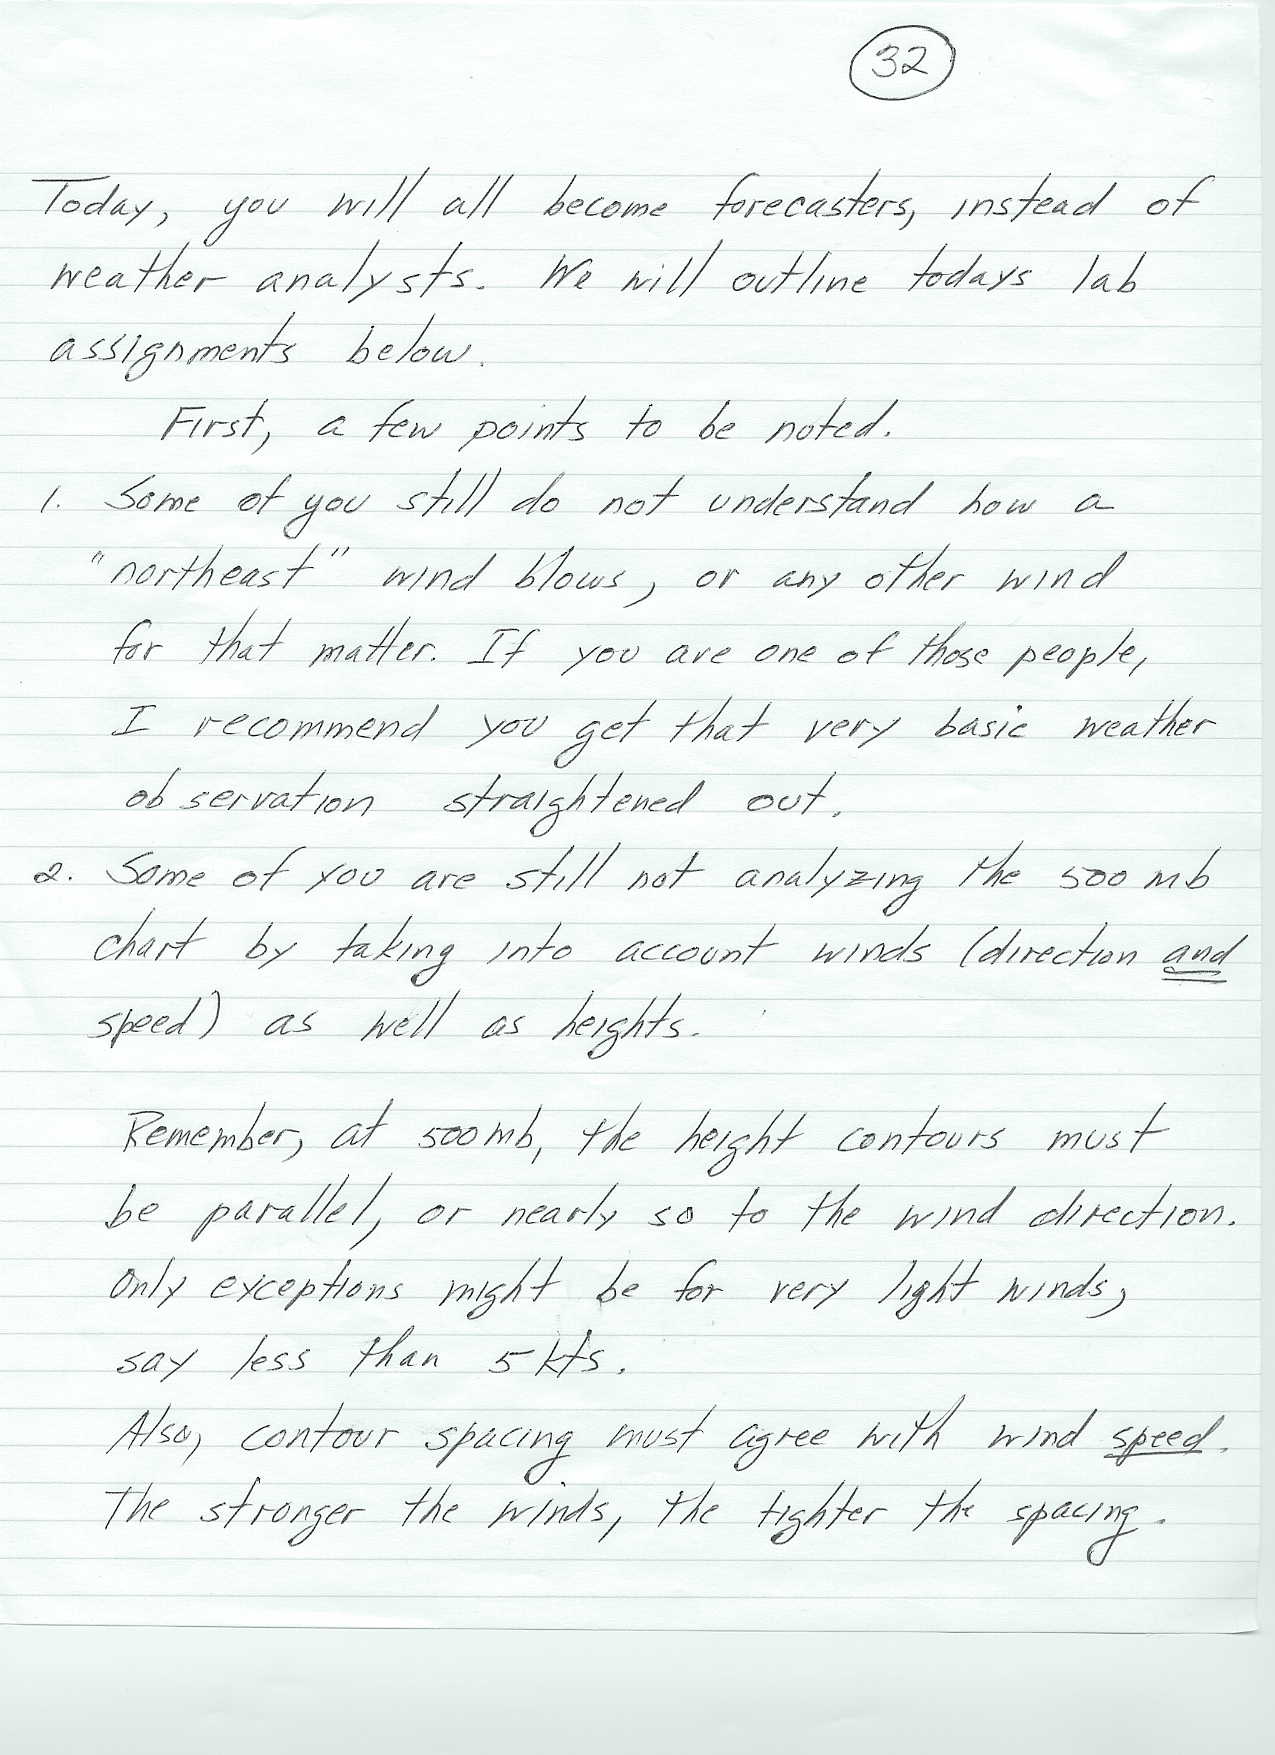 32
Today, you will all become forecasters, instead of
weather analysts. We will outline todays lab
assignments below.
First, a few points to be noted.
1. Some of you still do not understand how a
"northeast" wind blows, or any other wind
for that matter. If you are one of those people,
I recommend you get that very basic weather
observation straightened out.
2. Some of you are still not analyzing the 500 mb
chart by taking into account winds (direction and
speed) as well as heights.
Remember, at 500mb, the height contours must
be parallel, or nearly so to the wind direction.
Only exceptions might be for very light winds,
say less than 5 kts.
Also, contour spacing must agree with wind speed.
The stronger the winds, the tighter the spacing.